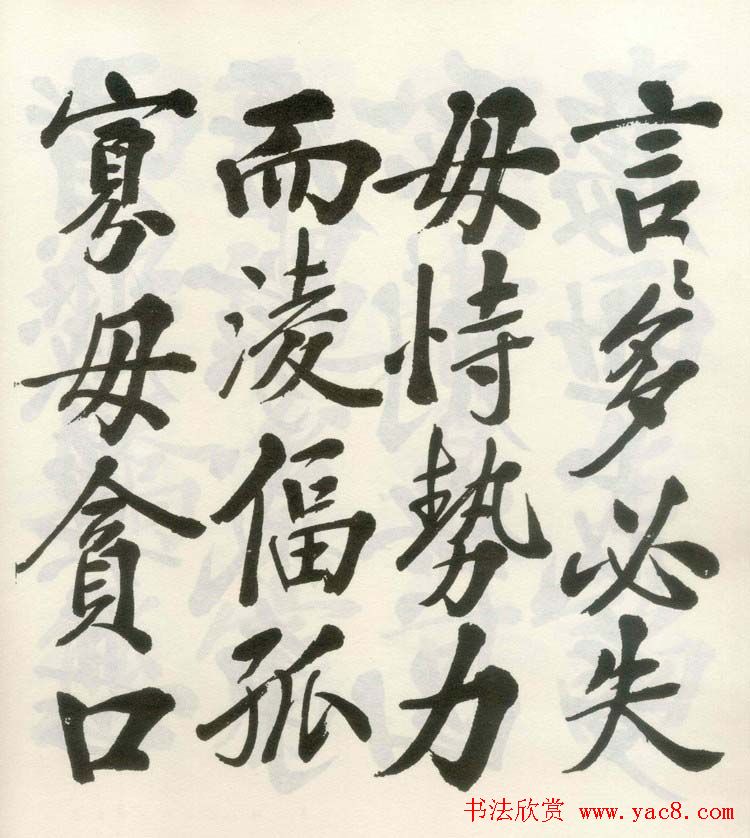 言〻多必失
毋恃勢力
而凌偪孤
寡毋貪口
书法欣赏 www.yac8.com